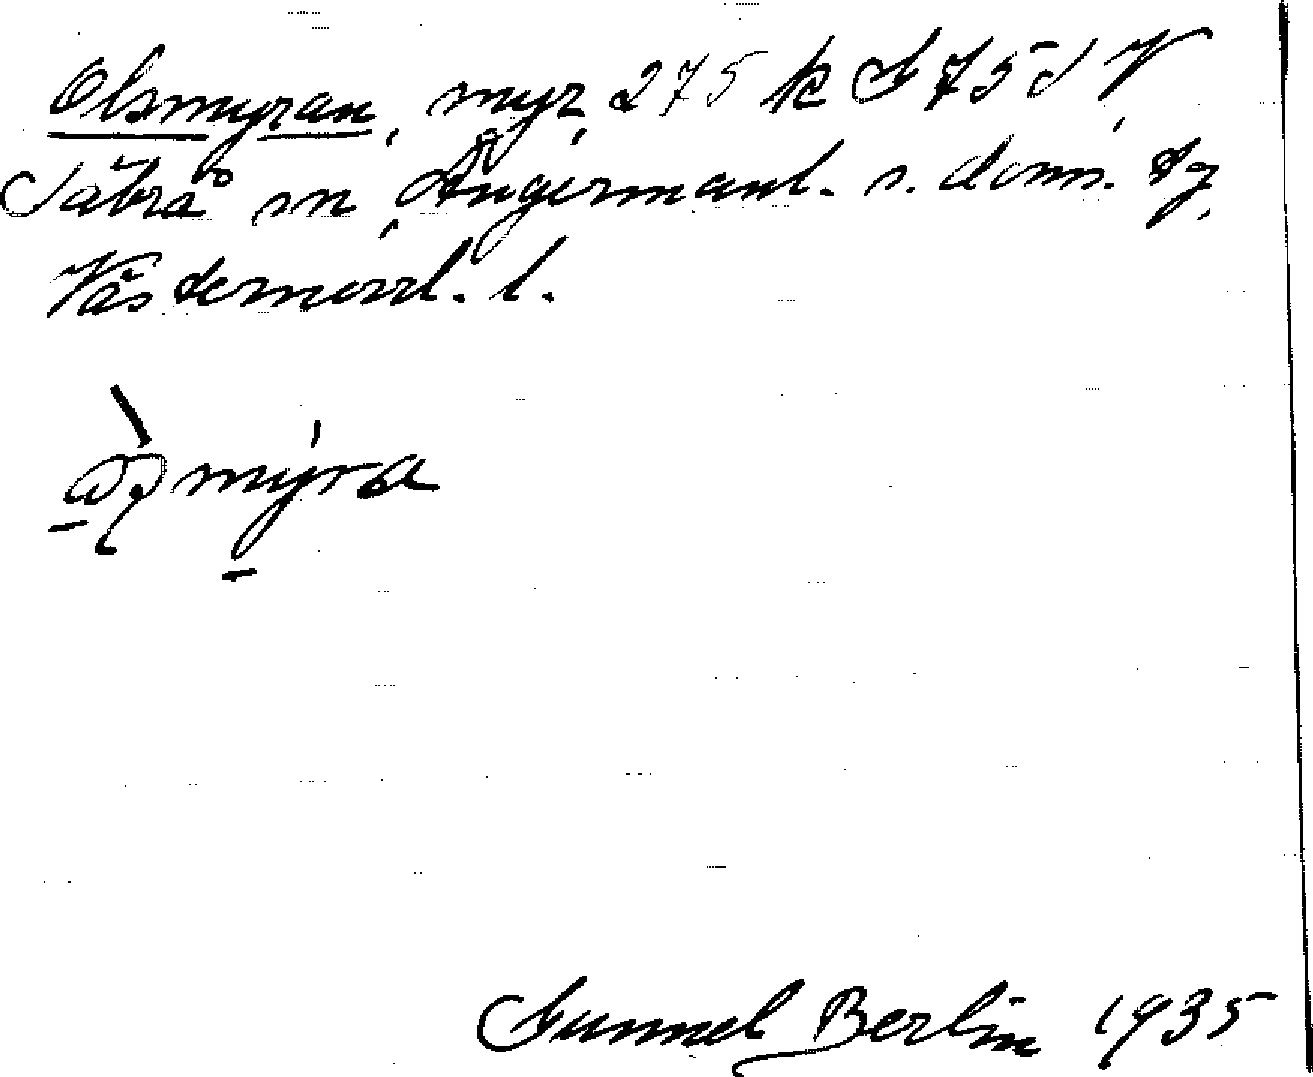 Olsmyran, myr 275 k A 75 d V
Säbrå sn, Ångermanl. s. doms. tg,
Västernorrl. l.
mýra
Gunnel Berlin 1935